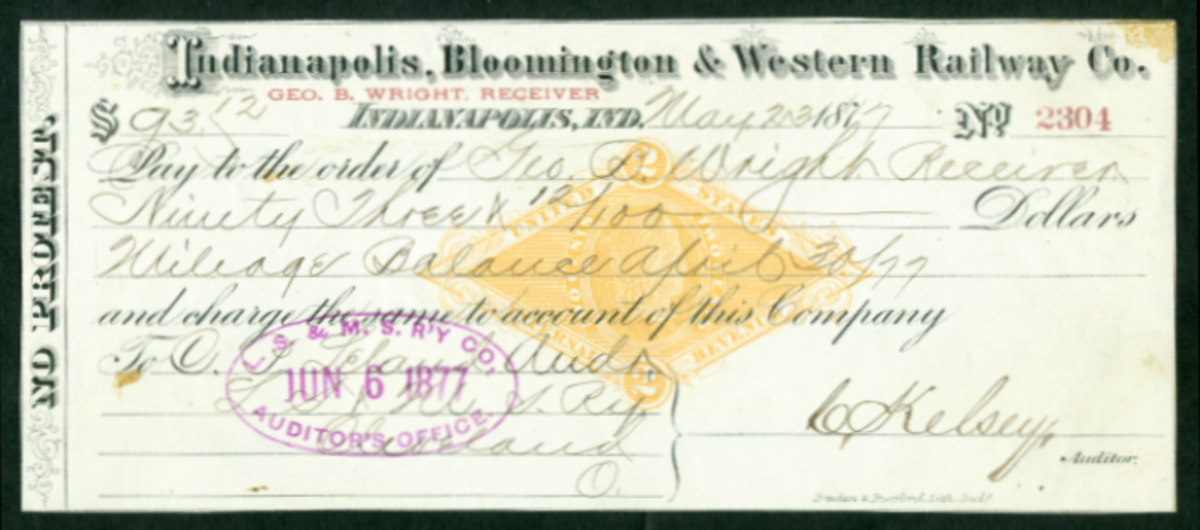 NO PROTEST.
Indianapolis, Bloomington & Western Railway Co.
GEO. B. WRIGHT. RECEIVER
$ 93.12 INDIANAPOLIS, IND. May 23 1877 No. 2304
Pay to the order of Geo. B. Wright Receiver
Ninety Three & 12/100 Dollars
Mileage Balance April 30/77
and charge the same to account of this Company
To C. P. Leland Aud.
L S & M. S. Ry
Cleveland
O.
L. S. & M. S. R'Y CO.
JUN 6 1877
AUDITOR'S OFFICE.
UNITED STATES
INTERNAL REVENUE
2
2
C Kelsey,
Auditor.